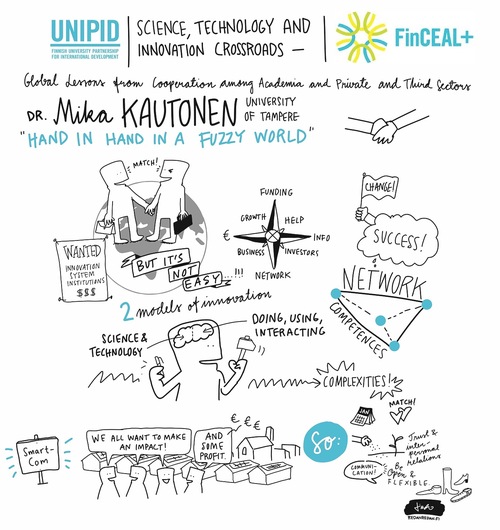 UNIPID
FINNISH UNIVERSITY PARTNERSHIP
FOR INTERNATIONAL DEVELOPMENT
SCIENCE, TECHNOLOGY AND
INNOVATION CROSSROADS —
FinCEAL+
Global Lessons from Cooperation among Academia and Private and Third Sectors
DR. Mika KAUTONEN
UNIVERSITY
OF TAMPERE
"HAND IN HAND IN A FUZZY WORLD"
MATCH!
WANTED
INNOVATION
SYSTEM
INSTITUTIONS
$$$
BUT IT'S
NOT
EASY...!!!
FUNDING
GROWTH
HELP
€
INFO
BUSINESS
INVESTORS
NETWORK
CHANGE!
SUCCESS!
NETWORK
COMPETENCES
2 models of innovation
SCIENCE &
TECHNOLOGY
DOING, USING,
INTERACTING
COMPLEXITIES!
Smart-
Com
WE ALL WANT TO MAKE
AN IMPACT!
AND
SOME
PROFIT.
€ € €
So:
JAN
MATCH!
Trust &
inter-
personal
relations
COMMUNI-
CATION!
Be
Open &
FLEXIBLE.